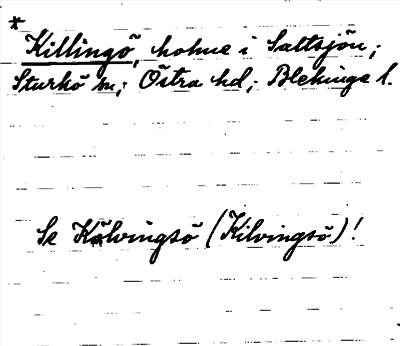 *
Killingö, holme i Saltsjön;
Sturkö sn; Östra hd; Blekinge l.
Se Kålvingsö (Kilvingsö)!